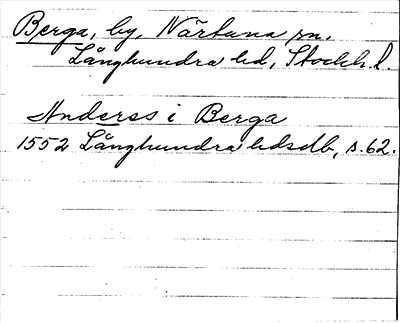 Berga, by, Närtuna sn.
Långhundra hd, Stockh. l.
Anderss i Berga
1552 Långhundra hdsdb, s. 62.